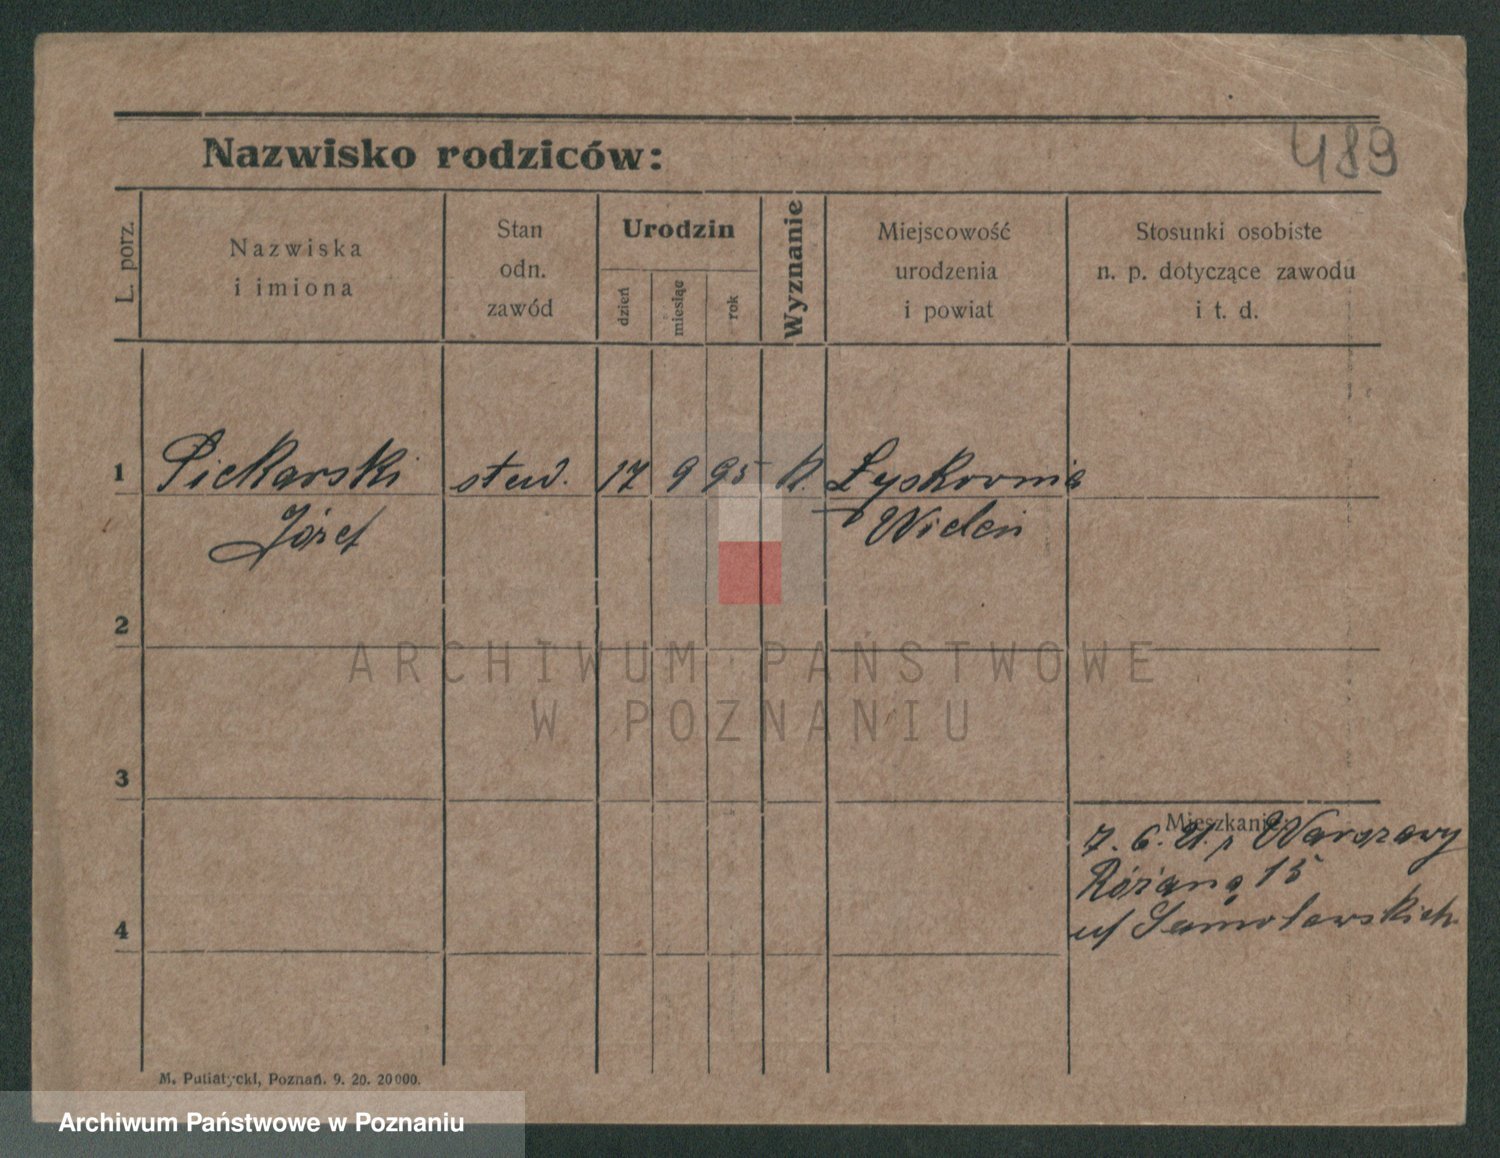 489
Nazwisko rodziców:
L. porz.
Nazwiska
i imiona
Stan
odn.
zawód
Urodzin
dzień
miesiąc
rok
Wyznanie
Miejscowość
urodzenia
i powiat
Stosunki osobiste
n. p. dotyczące zawodu
i t. d.
1 Piekarski 17 9 95 K.
Józef
2
3
4
Mieszkanie:
7. 6. 21. z Warszawy
Różana 15
M. Putiatycki, Poznań. 9. 20. 20000.
ARCHIWUM PAŃSTWOWE
W POZNANIU
Archiwum Państwowe w Poznaniu